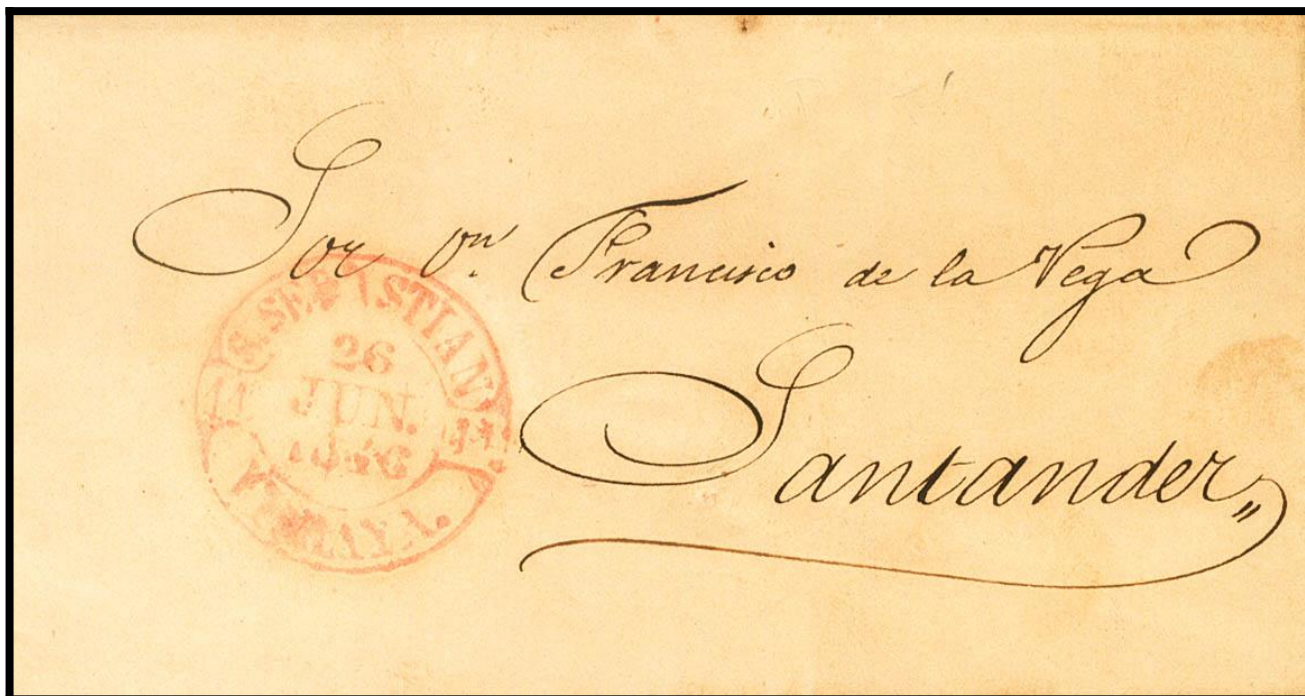 Sor Dn Francisco de la Vega
Santander,,
S. SEBASTIAN
26
JUN.